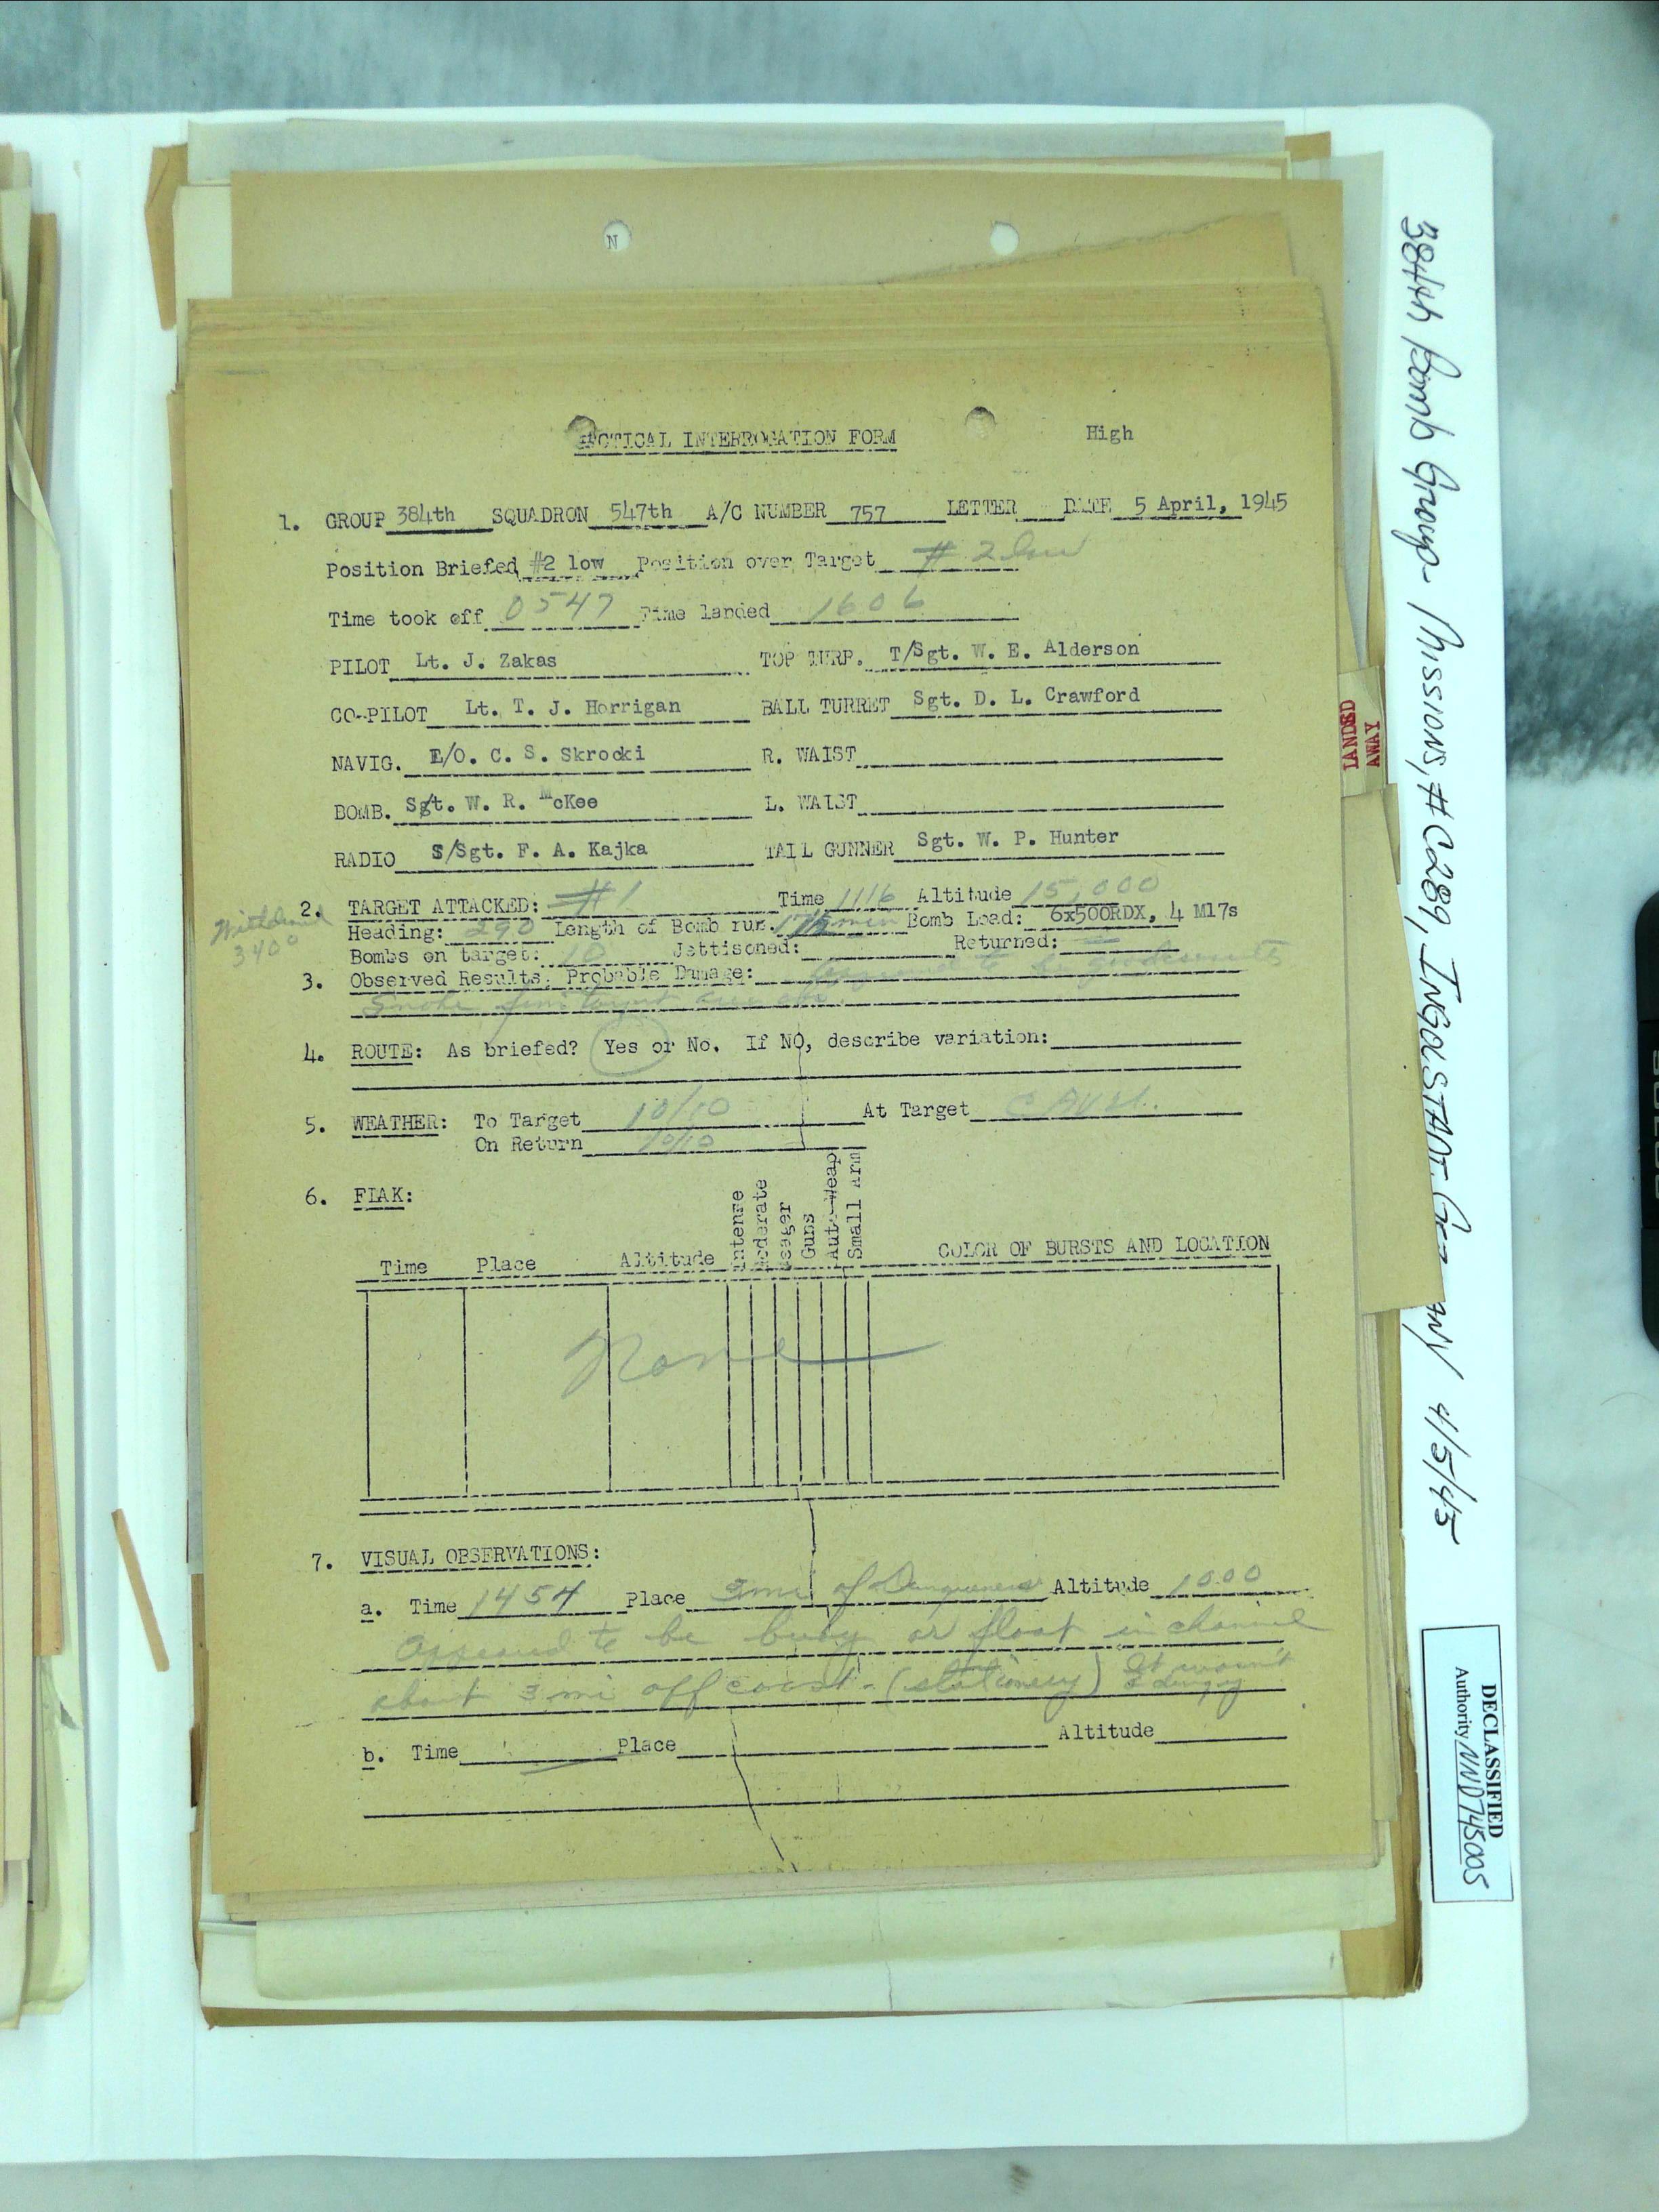 N
TACTICAL INTERROGATION FORM High
1. GROUP 384th SQUADRON 547th A/C NUMBER 757 LETTER DATE 5 April, 1945
Position Briefed #2 low Position over Target #2 low
Time took off 0547 Time landed 1606
PILOT Lt. J. Zakas TOP TURR. T/Sgt. W. E. Alderson
CO-PILOT Lt. T. J. Horrigan BALL TURRET Sgt. D. L. Crawford
NAVIG. F/O. C. S. Skrocki R. WAIST
BOMB. Sgt. W. R. McKee L. WAIST
RADIO S/Sgt. F. A. Kajka TAIL GUNNER Sgt. W. P. Hunter
2. TARGET ATTACKED: #1 Time 1116 Altitude 15,000
340°
Heading: 290 Length of Bomb run. min Bomb Load: 6x500RDX, 4 M17s
Bombs on target: 10 Jettisoned: Returned:
3. Observed Results, Probable Damage: Appeared to be good results
Smoke from target area
4. ROUTE: As briefed? Yes or No. If NO, describe variation:
5. WEATHER: To Target 10/10 At Target CAVU.
On Return 10/10
6. FLAK:
Time Place Altitude Intense Moderate Meager Guns Auto-Weap Small Arm COLOR OF BURSTS AND LOCATION
None
7. VISUAL OBSERVATIONS:
a. Time 1454 Place 3 mi of Altitude 1000
Appeared to be buoy or float in channel
about 3 mi off coast - (stationery) It wasn't a dingy
b. Time Place Altitude
384th Bomb Group - Missions, #C289, INGOLSTADT, Germany 4/5/45
LANDED
AWAY
DECLASSIFIED
Authority NND745005